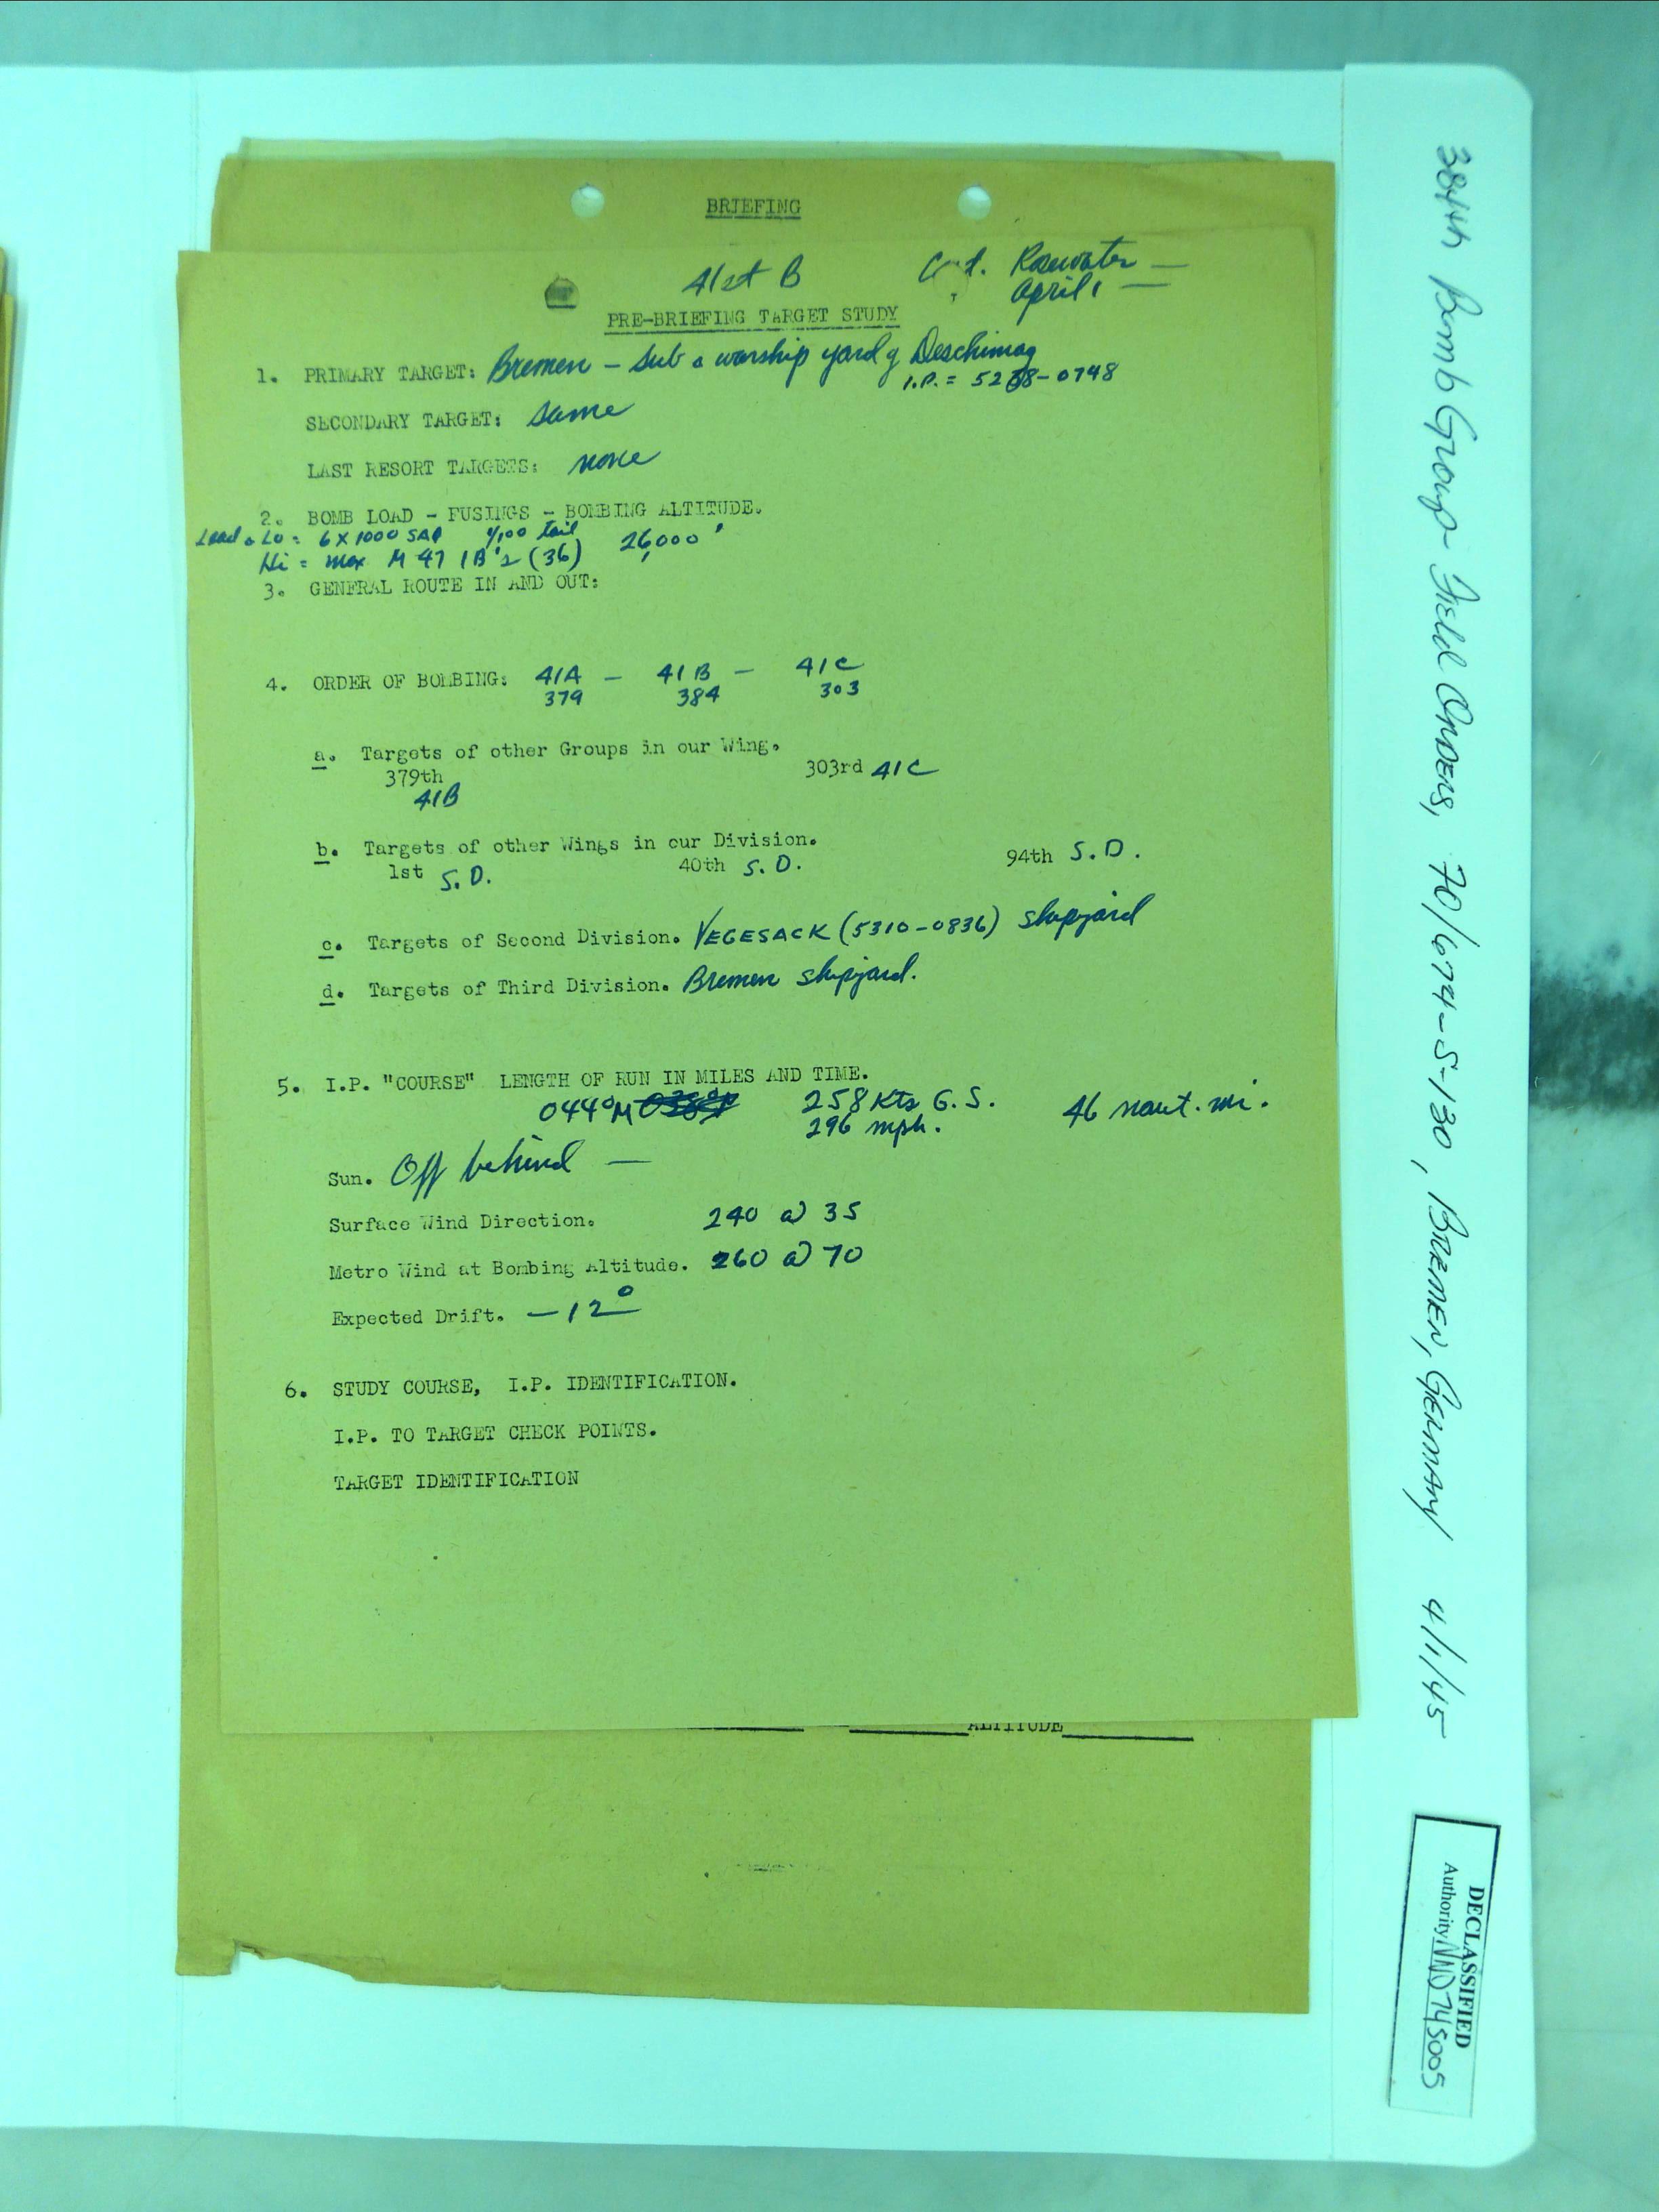 BRIEFING
41st B
Rosewater —
April 1 —
PRE-BRIEFING TARGET STUDY
1. PRIMARY TARGET: Bremen – Sub & warship yard of Deschimag
I.P. = 5238-0748
SECONDARY TARGET: same
LAST RESORT TARGETS: none
2. BOMB LOAD – FUSINGS – BOMBING ALTITUDE.
Lead & Lo = 6 X 1000 SAP 1/100 tail 26,000'
Hi = max M 47 IB's (36)
3. GENERAL ROUTE IN AND OUT:
4. ORDER OF BOMBING: 41A – 41B – 41C
379 384 303
a. Targets of other Groups in our Wing.
379th 303rd 41C
41B
b. Targets of other Wings in our Division.
1st S.D. 40th S.D. 94th S.D.
c. Targets of Second Division. VEGESACK (5310-0836) shipyard
d. Targets of Third Division. Bremen shipyard.
5. I.P. "COURSE" LENGTH OF RUN IN MILES AND TIME.
044°M 258 Kts G.S. 46 naut. mi.
296 mph.
Sun. Off behind —
Surface Wind Direction. 240 @ 35
Metro Wind at Bombing Altitude. 260 @ 70
Expected Drift. –12°
6. STUDY COURSE, I.P. IDENTIFICATION.
I.P. TO TARGET CHECK POINTS.
TARGET IDENTIFICATION
ALTITUDE
384th Bomb Group Field Orders, 70/674-5-130, BREMEN, GERMANY 4/1/45
DECLASSIFIED
Authority NND 745005